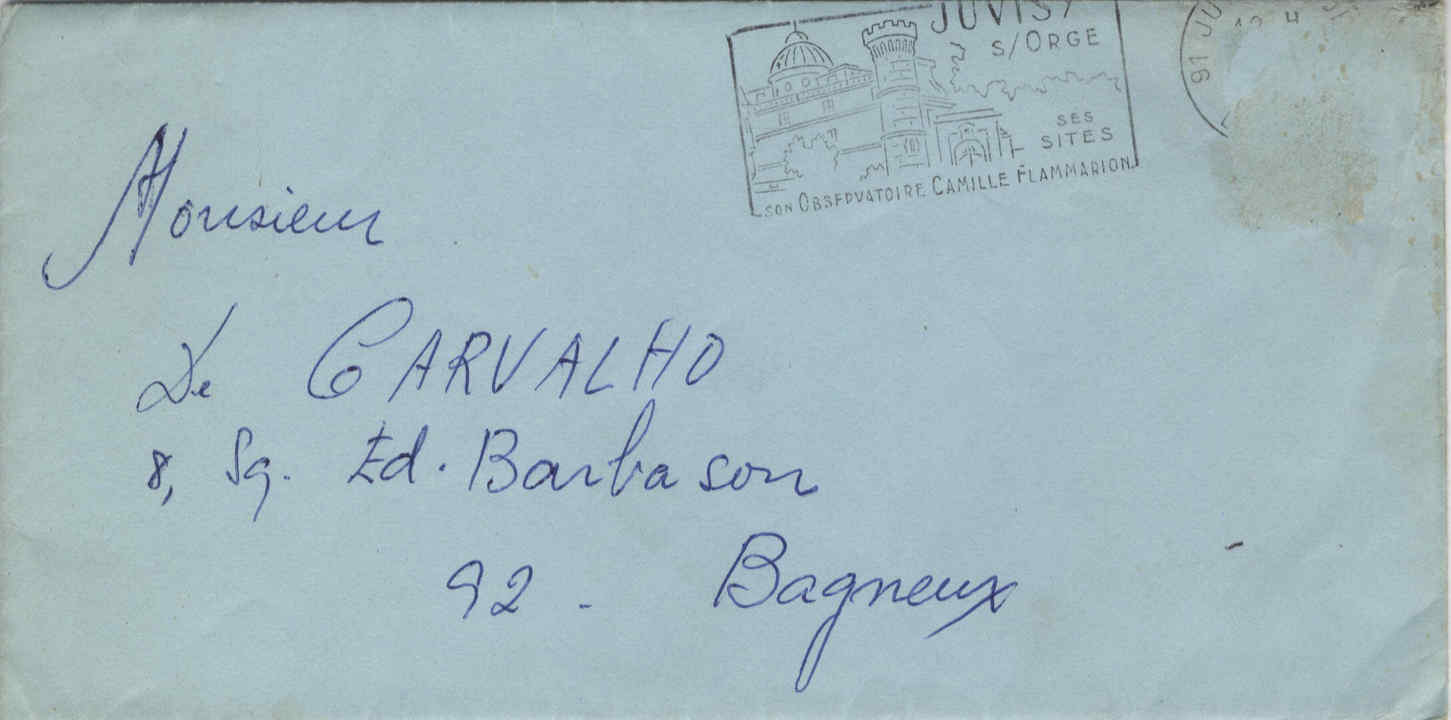 JUVISY
S/ORGE
SES
SITES
SON OBSERVATOIRE CAMILLE FLAMMARION
91 JU
Monsieur
De CARVALHO
8, Sq. Ed. Barbason
92 - Bagneux